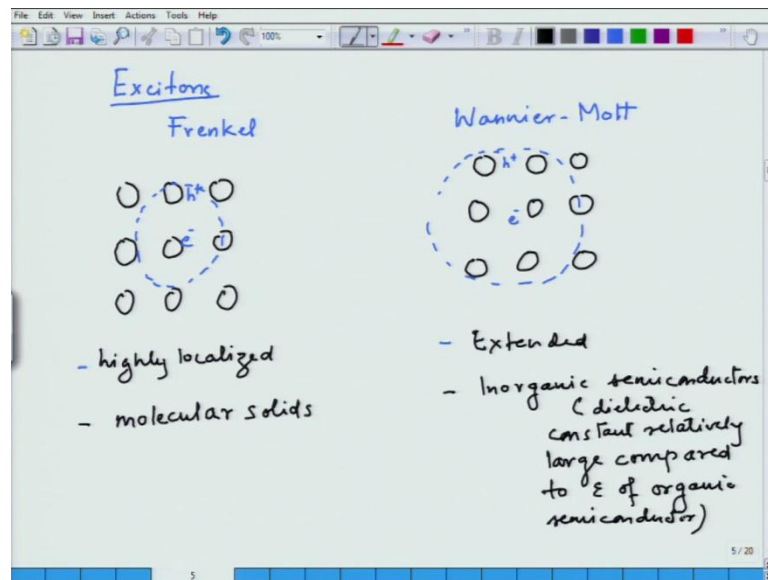 File Edit View Insert Actions Tools Help
100%
B I
Excitons
Frenkel
Wannier-Mott
h+
e-
h+
e-
- highly localized
- molecular solids
- Extended
- Inorganic semiconductors
(dielectric
constant relatively
large compared
to ε of organic
semiconductor)
5/20
5